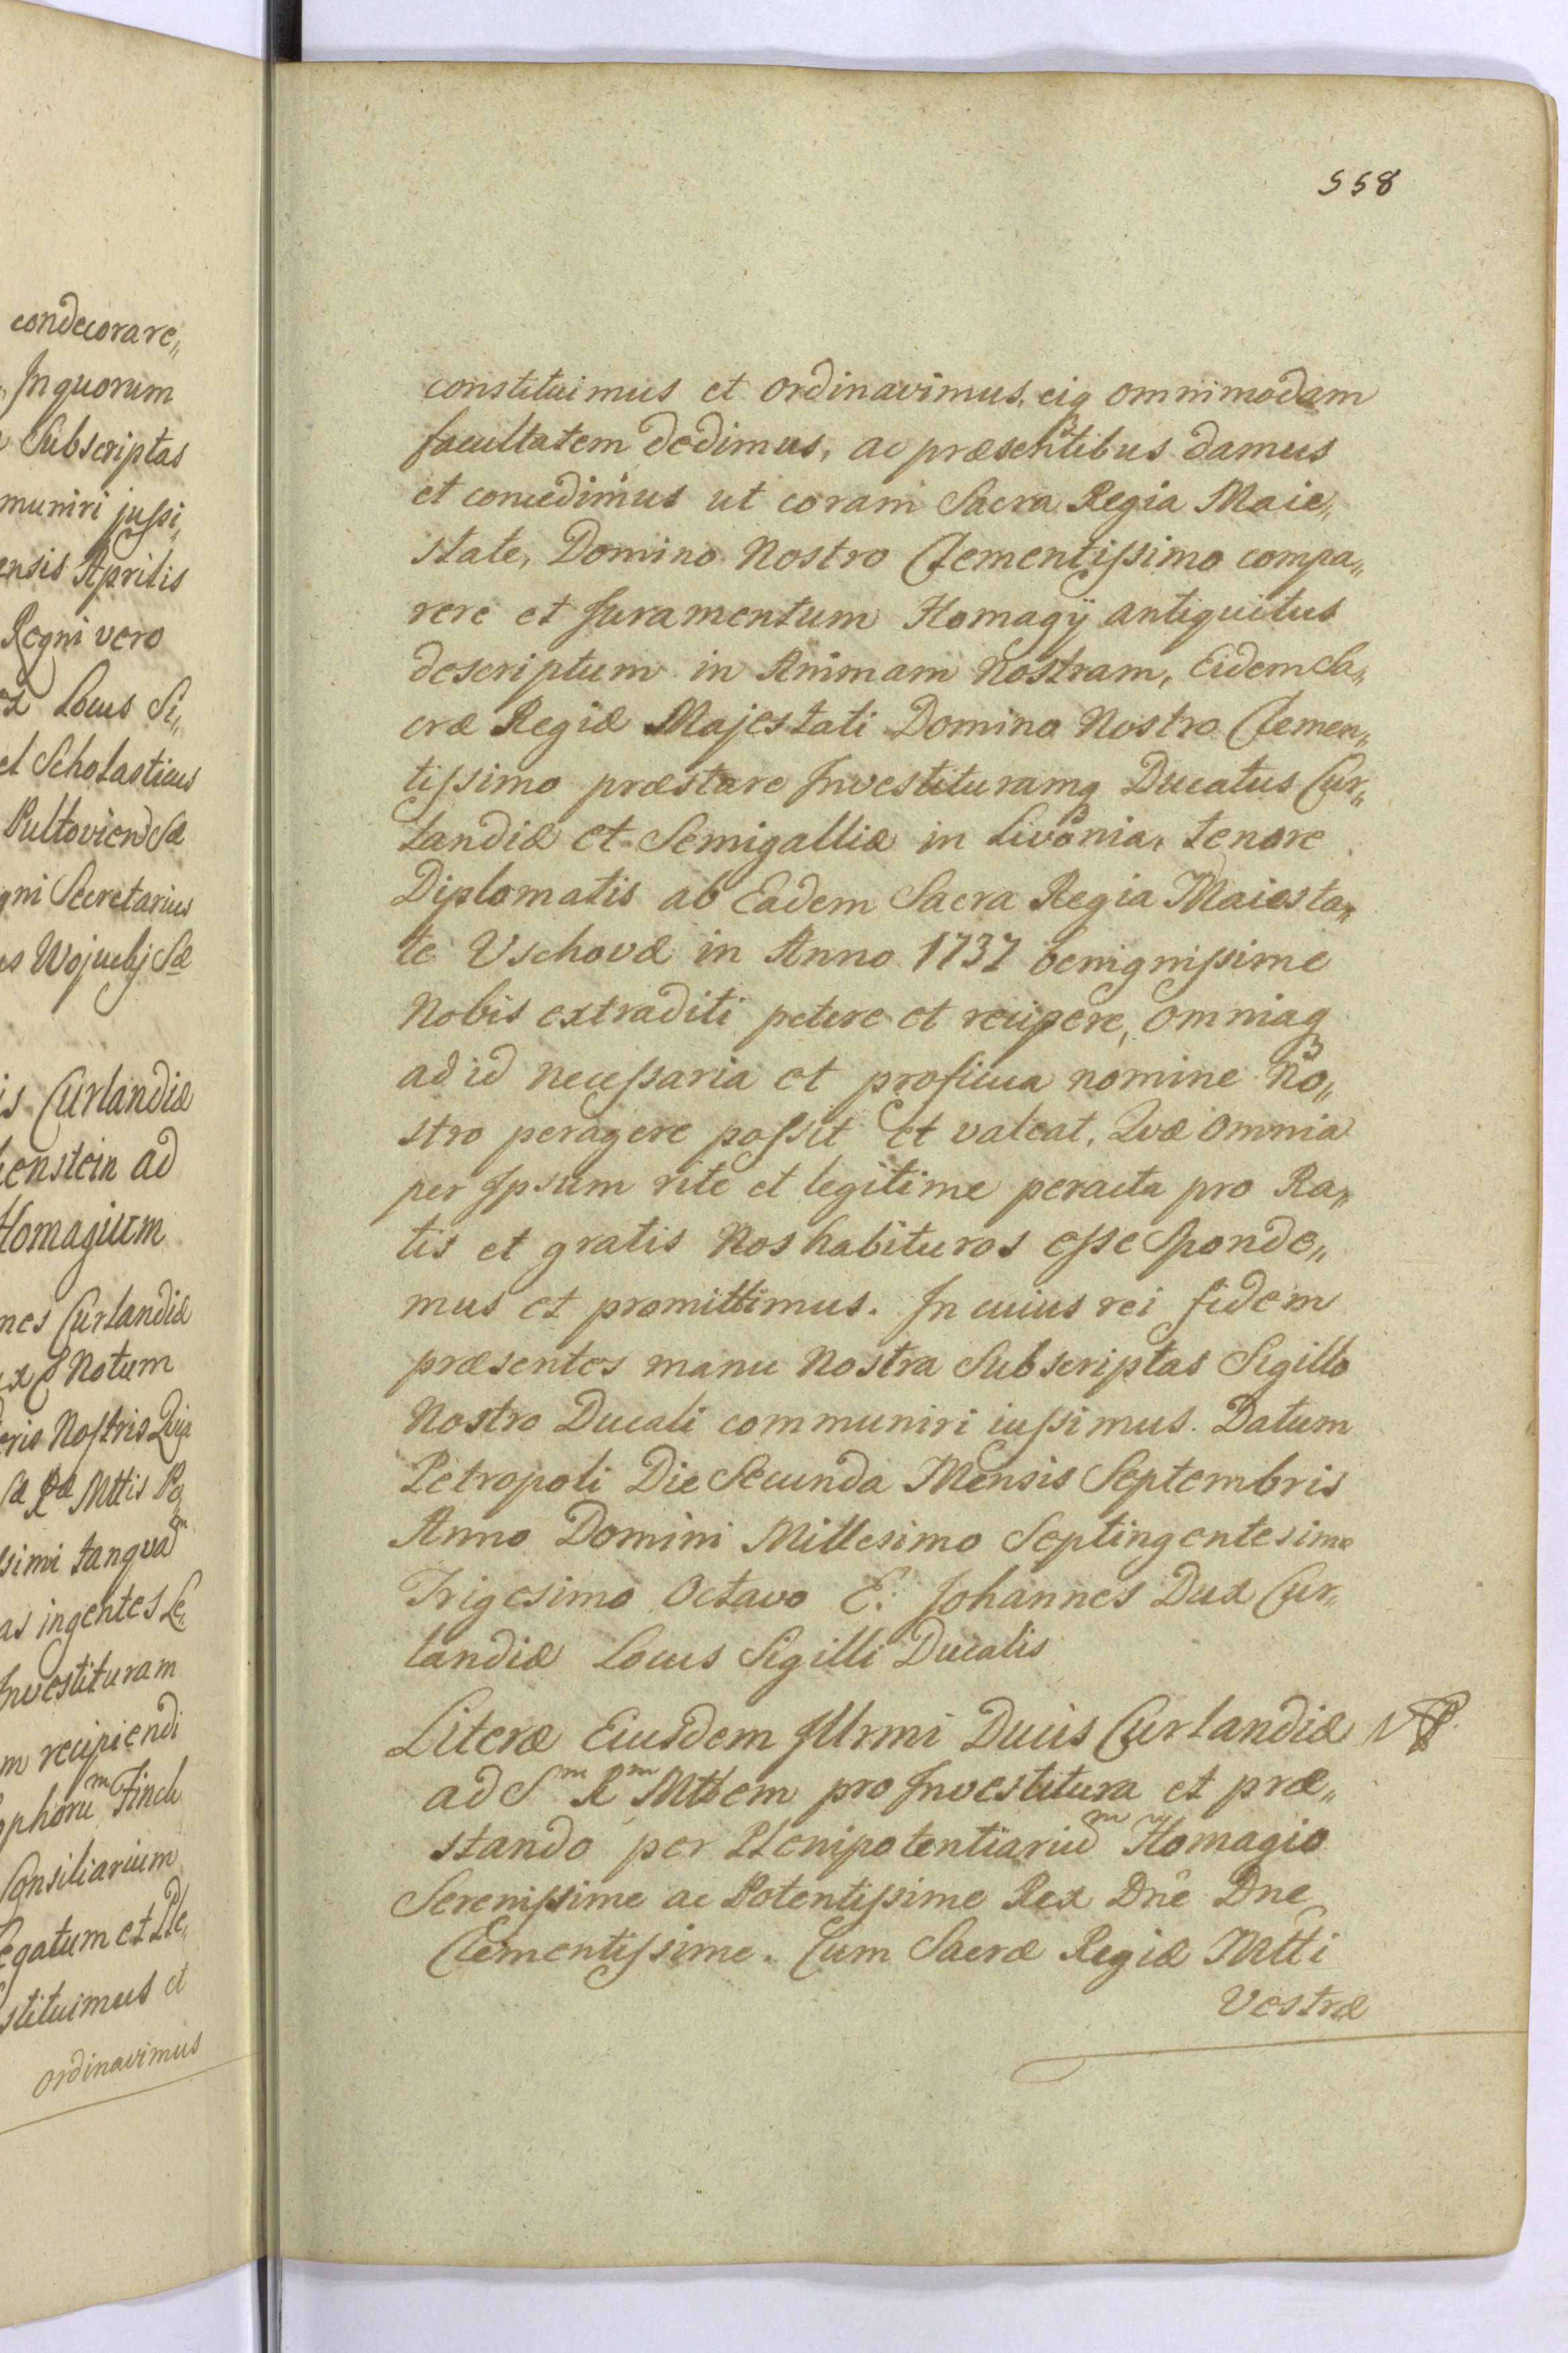 condecorare„
Inquorum
Subscriptas
muniri jussi„
ensis Aprilis
Regni vero
Locus Si„
et Scholasticus
Pultoviensis
gni Secretarius
is Curlandiæ
enstein ad
Homagium
nes Curlandiæ
Notum
Nostris
Mttis
simi tanquam
as ingentes Le„
Investituram
m recipiendi
ophorum Finch
Consiliarium
egatum et Ple„
stituimus et
ordinavimus
558
constituimus et ordinavimus, eiq omnimodam
facultatem dedimus, ac præsentibus damus
et concedimus ut coram Sacra Regia Maie„
state, Domino Nostro Clementissimo compa„
rere et Juramentum Homagÿ antiquitus
descriptum in Animam Nostram, Eidem Sa„
cræ Regiæ Majestati Domino Nostro Clemen„
tissimo præstare Investituramq Ducatus Cur„
landiæ et Semigalliæ in Livonia, tenore
Diplomatis ab Eadem Sacra Regia Maiesta„
te Vschovæ in Anno 1737 benignissime
Nobis extraditi petere et recipere, omniaq
ad id necessaria et proficua nomine No„
stro peragere possit et valeat, Qvæ omnia
per Ipsum rite et legitime peracta pro Ra„
tis et gratis Nos habituros esse Sponde„
mus et promittimus. In cuius rei fidem
præsentes manu Nostra Subscriptas Sigillo
Nostro Ducali communiri iussimus. Datum
Petropoli Die Secunda Mensis Septembris
Anno Domini Millesimo Septingentesimo
Trigesimo Octavo E: Johannes Dux Cur„
landiæ Locus Sigilli Ducalis
Literæ Eiusdem Illrmi Ducis Curlandiæ
ad S<sup>m</sup> R<sup>m</sup> Mttem pro Investitura et præ„
stando per Plenipotentiariu<sup>m</sup> Homagio
Serenissime ac Potentissime Rex Dne Dne
Clementissime. Cum Sacræ Regiæ Mtti
Vestræ